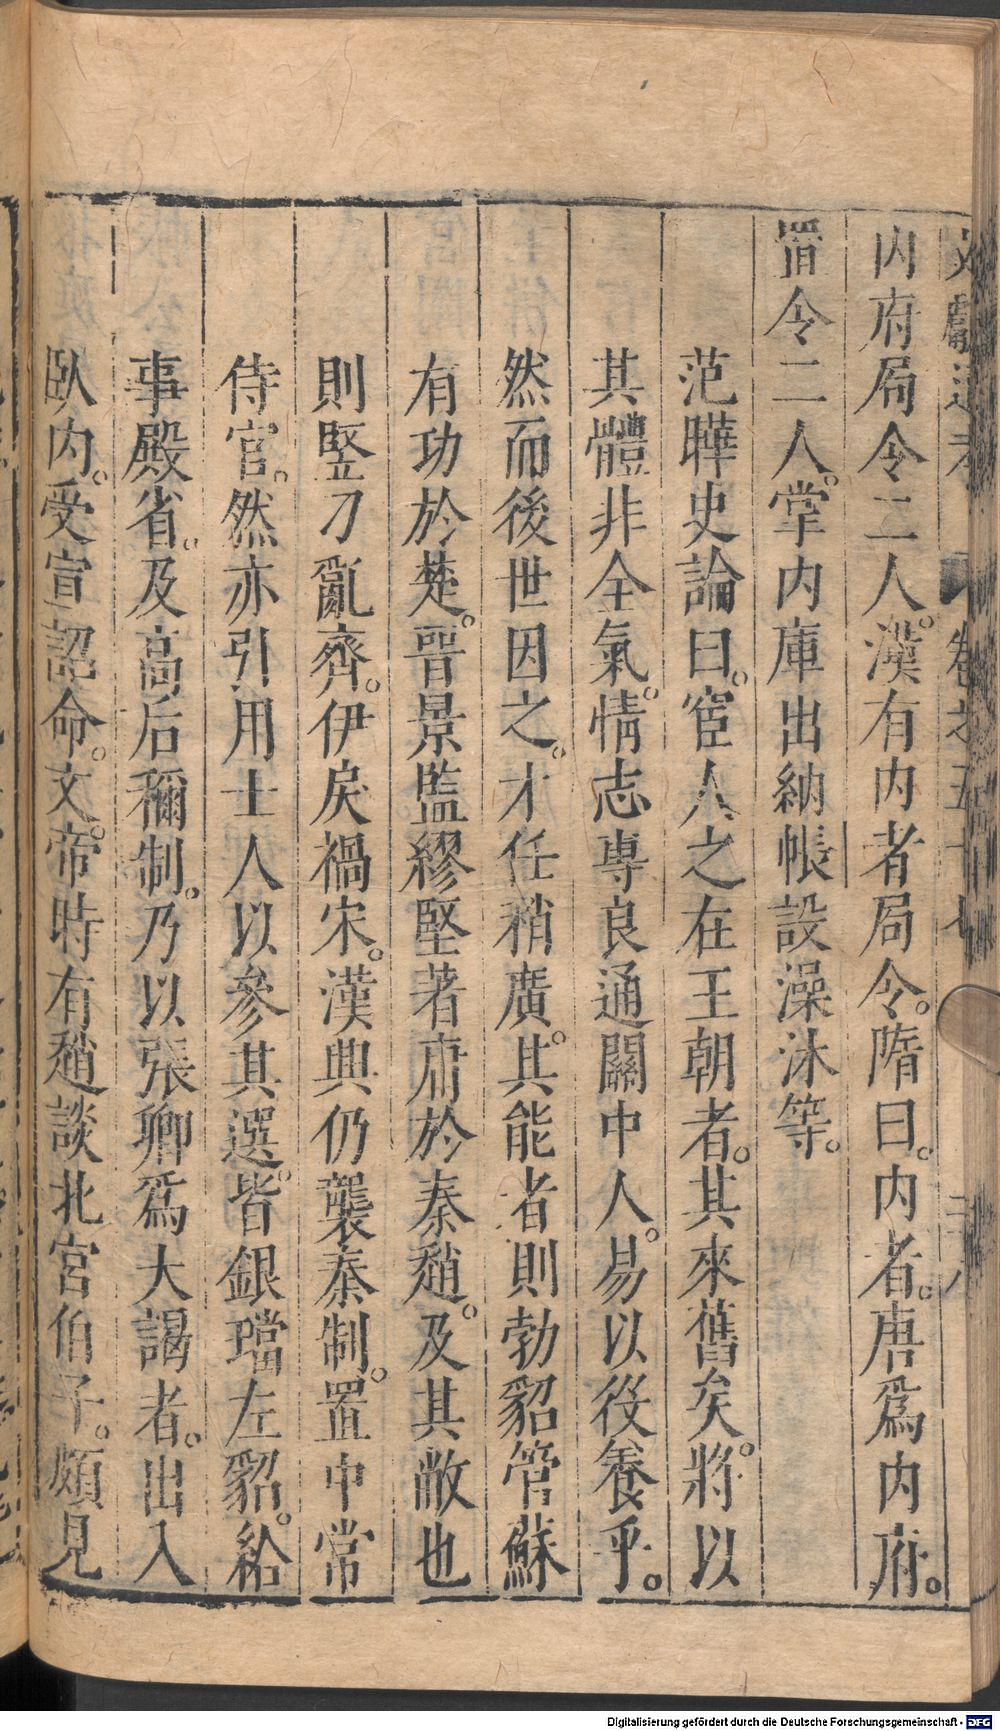 文獻通考 卷之五十七 二十八
内府局令二人。漢有内者局令。隋曰。内者。唐爲内府。
置令二人。掌内庫出納帳設澡沐等。
范曄史論曰。宦人之在王朝者。其來舊矣。將以
其體非全氣。情志專良通關中人。易以役養乎。
然而後世因之。才任稍廣。其能者則勃貂管蘇
有功於楚。晋景監繆堅著庸於秦趙。及其敝也
則竪刀亂齊。伊戾禍宋。漢興仍襲秦制。置中常
侍官。然亦引用士人以參其選。皆銀璫左貂。給
事殿省。及高后稱制。乃以張卿爲大謁者。出入
臥内。受宣詔命。文帝時有趙談北宮伯子。頗見
Digitalisierung gefördert durch die Deutsche Forschungsgemeinschaft - DFG